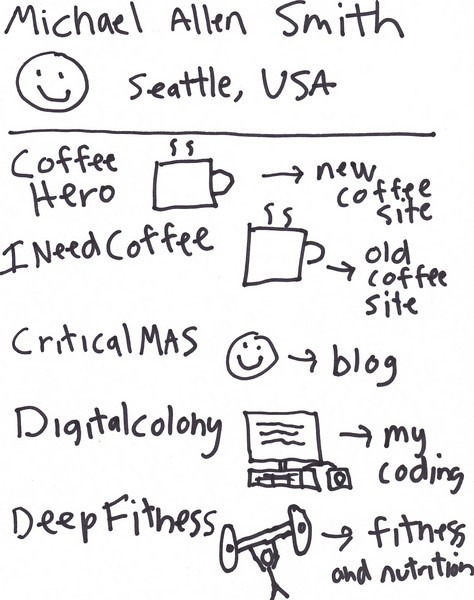 Michael Allen Smith
Seattle, USA
Coffee Hero → new coffee site
I Need Coffee → old coffee site
CriticalMAS → blog
Digitalcolony → my coding
DeepFitness → fitness and nutrition